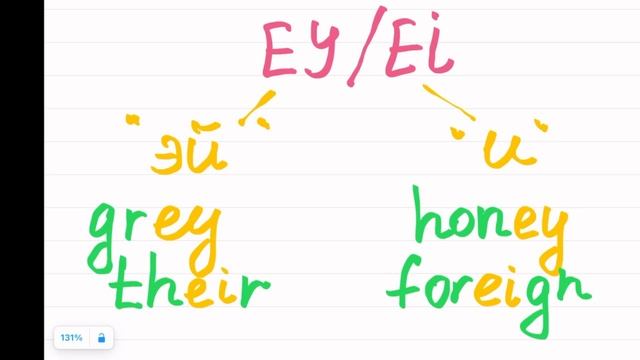 Ey/Ei
"эй" "и"
grey honey
their foreign
131%